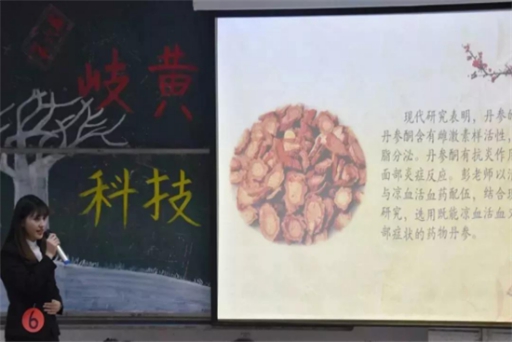 岐黄
科技
现代研究表明，丹参
丹参酮含有雌激素样活性，
脂分泌。丹参酮有抗炎作
面部炎症反应。彭老师以
与凉血活血药配伍，结合
研究，选用既能凉血活血又
部症状的药物丹参。
6